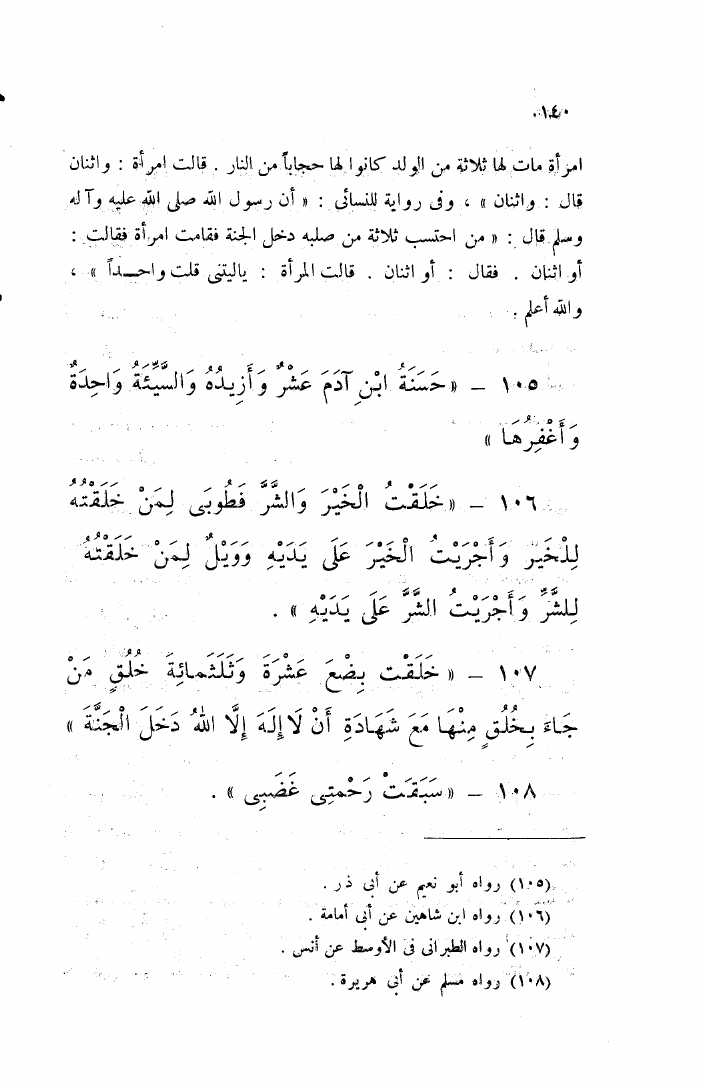 ١٤٠
امرأة مات لها ثلاثة من الولد كانوا لها حجاباً من النار . قالت امرأة : واثنان
قال : واثنان » ، وفى رواية للنسائى : « أن رسول الله صلى الله عليه وآله
وسلم قال : « من احتسب ثلاثة من صلبه دخل الجنة فقامت امرأة فقالت :
أو اثنان . فقال : أو اثنان . قالت المرأة : ياليتنى قلت واحـــداً » ،
والله أعلم .
١٠٥ – « حَسَنَةُ ابْنِ آدَمَ عَشْرٌ وَأَزِيدُهُ وَالسَّيِّئَةُ وَاحِدَةٌ
وَأَغْفِرُهَا »
١٠٦ – « خَلَقْتُ الْخَيْرَ وَالشَّرَّ فَطُوبَى لِمَنْ خَلَقْتُهُ
لِلْخَيْرِ وَأَجْرَيْتُ الْخَيْرَ عَلَى يَدَيْهِ وَوَيْلٌ لِمَنْ خَلَقْتُهُ
لِلشَّرِّ وَأَجْرَيْتُ الشَّرَّ عَلَى يَدَيْهِ » .
١٠٧ – « خَلَقْتُ بِضْعَ عَشْرَةَ وَثَلَثَمِائَةَ خُلُقٍ مَنْ
جَاءَ بِخُلُقٍ مِنْهَا مَعَ شَهَادَةِ أَنْ لَا إِلَهَ إِلَّا اللهُ دَخَلَ الْجَنَّةَ »
١٠٨ – « سَبَقَتْ رَحْمَتِى غَضَبِى » .
(١٠٥) رواه أبو نعيم عن أبى ذر .
(١٠٦) رواه ابن شاهين عن أبى أمامة .
(١٠٧) رواه الطبرانى فى الأوسط عن أنس .
(١٠٨) رواه مسلم عن أبى هريرة .